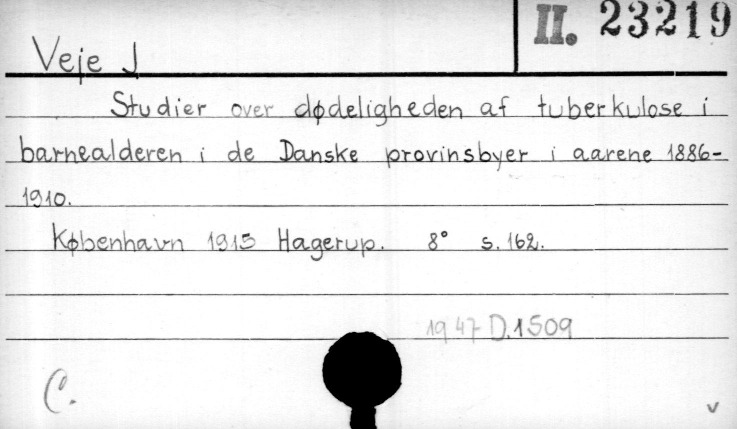 II. 23219
Veje J
Studier over dødeligheden af tuberkulose i
barnealderen i de Danske provinsbyer i aarene 1886-
1910.
København 1915 Hagerup. 8° s. 162.
1947 D.1509
C.
v